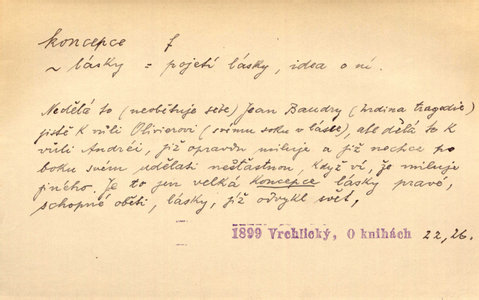 koncepce f
~ lásky = pojetí lásky, idea o ní.
Nedělá to (neobětuje sebe) Jean Baudry (hrdina tragedie)
jistě k vůli Olivierovi (svému soku v lásce), ale dělá to k
vůli Andréi, již opravdu miluje a již nechce po
boku svém udělati nešťastnou, když ví, že miluje
jiného. Je to jen velká koncepce lásky pravé,
schopné oběti, lásky, již odvykl svět,
1899 Vrchlický, O knihách 22,26.